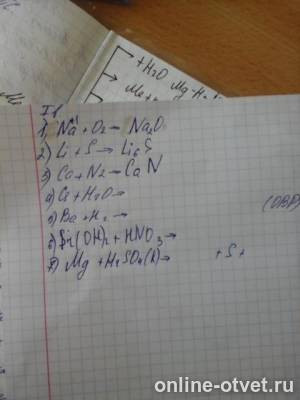 +H2O Mg
I в
1) Na + O2 → Na2O
2) Li + S → Li6S
3) Ca + N2 → CaN
4) Cs + H2O →
5) Ba + H2 →
6) Sr(OH)2 + HNO3 →
7) Mg + H2SO4(k) → + S +
(ОВР)
online-otvet.ru